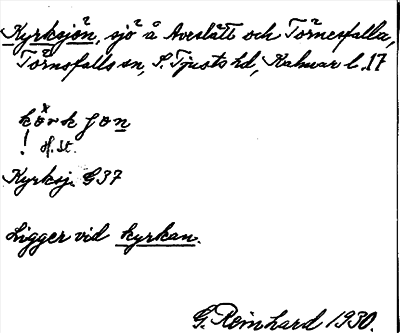 Kyrksjön, sjö å Aveslätt och Törnesfalla,
Törnsfalls sn, S. Tjusts hd, Kalmar l. 17
körkʃon
! Hf. St.
Kyrksj. G37
Ligger vid kyrkan.
G. Reinhard 1930.